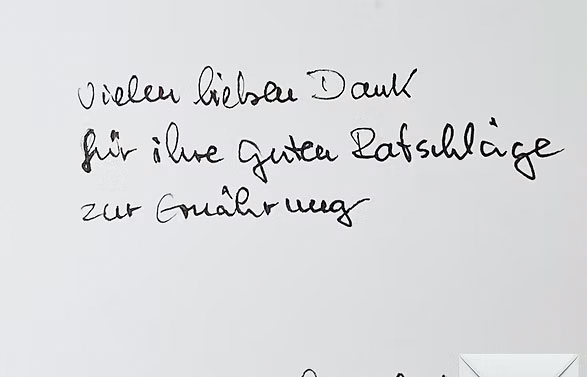 vielen lieben Dank
für ihre guten Ratschläge
zur Ernährung